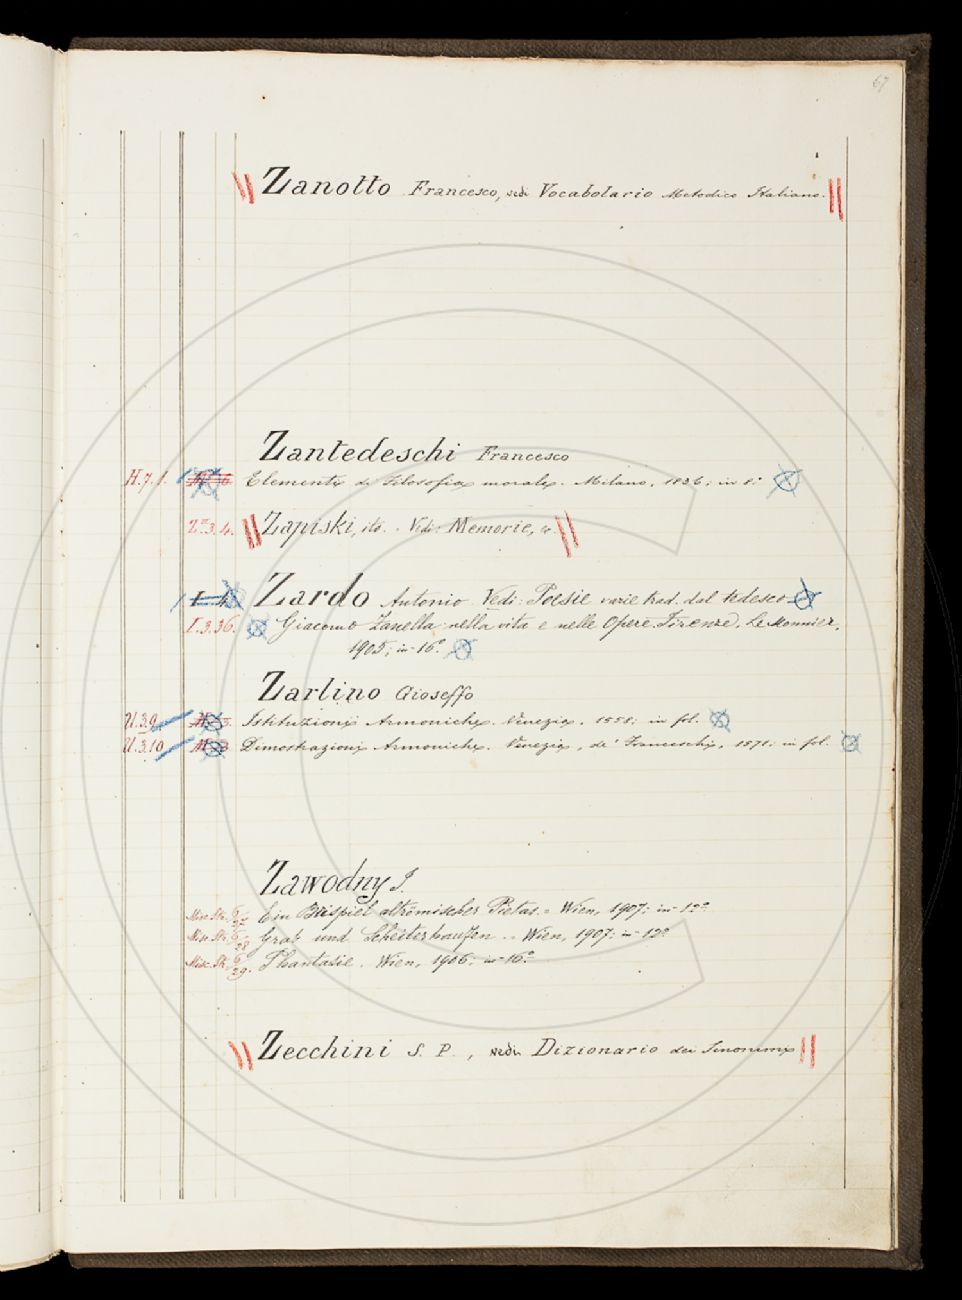 67
Zanotto Francesco, vedi Vocabolario Metodico Italiano.
Zantedeschi Francesco
H.7.1. Elementi di Filosofia morale. Milano, 1836; in 8.°
Zapiski, ito. - Vedi: Memorie, &.
Zardo Antonio. Vedi: Poesie varie trad. dal tedesco
I.3.36. Giacomo Zanella nella vita e nelle Opere. Firenze, Le Monnier,
1905; in-16.°
Zarlino Gioseffo
U.3.9 Istituzioni Armoniche. Venezia, 1558; in fol.
U.3.10 Dimostrazioni Armoniche. Venezia, de' Franceschi, 1571; in fol.
Zawodny J.
Misc. Str. 6/27 Ein Beispiel altrömischer Pietas. - Wien, 1907; in-12°.
Misc. Str. 6/28 Grab und Scheiterhaufen. - Wien, 1907; in-12°.
Misc. Str. 6/29. Phantasie. Wien, 1906; in-16.°
Zecchini S. P., vedi Dizionario dei Sinonimi